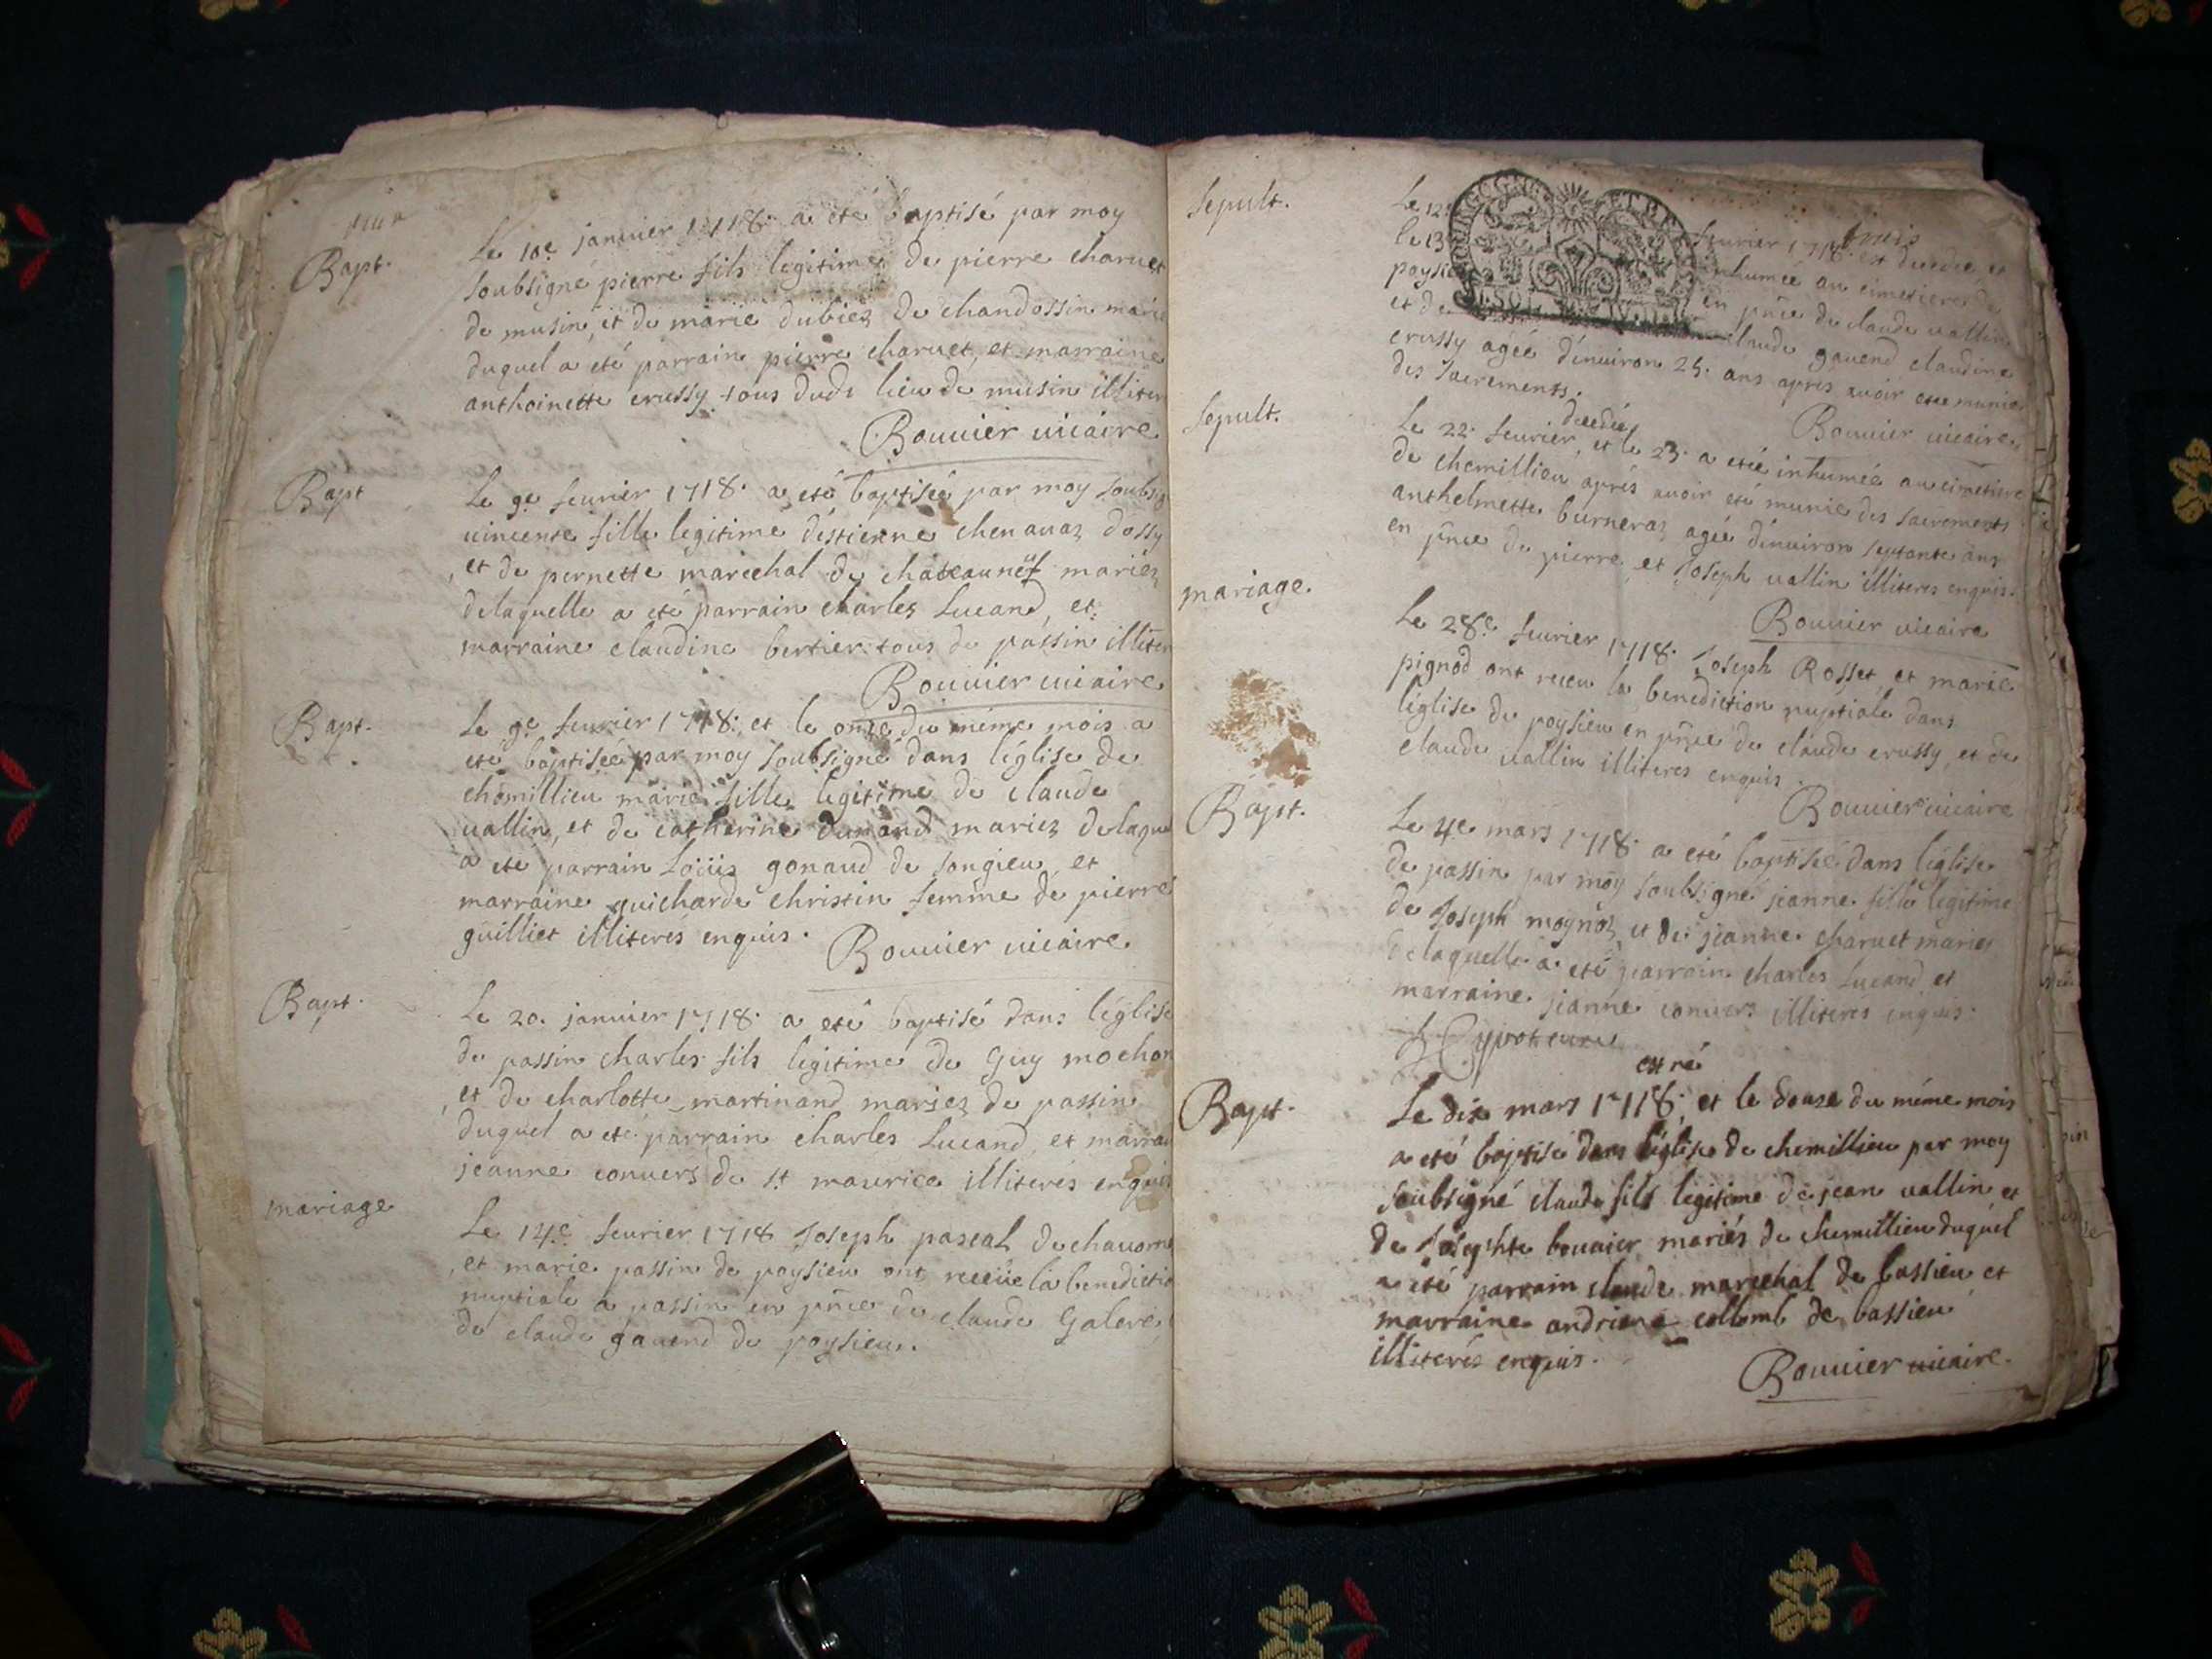 Bapt.
Le 10e janvier 1718. a eté baptisé par moy
soubsigné pierre fils legitime de pierre charvet
de musin, et de marie dubiez de chandossin marie
duquel a eté parrain pierre charvet, et marraine
anthoinette crussy tous dudt lieu de musin illiter
Bouvier vicaire
Bapt
Le 9e fevrier 1718. a eté baptisée par moy soubsig
vincente fille legitime d'estienne chenavaz dossy
, et de pernette marechal de chateauneuf mariez
delaquelle a eté parrain charles Lucand, et
marraine claudine bertier tous de passin illiter
Bouvier vicaire
Bapt.
Le 9e fevrier 1718. et le onze du méme mois a
eté baptisée par moy soubsigné dans léglise de
chemillieu marie fille legitime de claude
vallin, et de catherine dumand mariez delaque
a eté parrain Loüis gonaud de songieu, et
marraine guicharde christin femme de pierre
guilliet illiterés enquis.
Bouvier vicaire
Bapt.
Le 20. janvier 1718. a eté baptisé dans léglise
de passin charles fils legitime de Guy mochon
, et de charlotte martinand mariez de passin
duquel a eté parrain charles Lucand, et marrai
jeanne convers de st maurice illiterés enquis
mariage
Le 14e fevrier 1718 Joseph pascal de chavorn
, et marie passin de poysieu ont receüe la benedictio
nuptiale a passin en pnce de claude Galere,
de claude gavend de poysieu.
Sepult.
Le 12
fevrier 1718. est decedée et
le 13
inhumée au cimetiere de
poysieu
en pnce de claude vallin
et de
claude gavend claudine
crussy agée d'environ 25. ans aprés avoir eté munie
des sacrements.
Bouvier vicaire
Sepult.
decedée
Le 22. fevrier, et le 23. a eté inhumée au cimetiere
de chemillieu aprés avoir eté munie des sacrements
anthelmette burneraz agée d'environ septante ans
en pnce de pierre et Joseph vallin illiteres enquis.
Bouvier vicaire
mariage.
Le 28e fevrier 1718. Joseph Rosset et marie
pignod ont receu la benediction nuptiale dans
léglise de poysieu en pnce de claude crussy, et de
claude vallin illiteres enquis.
Bouvier vicaire
Bapt.
Le 4e mars 1718. a eté baptisée dans léglise
de passin par moy soubsigné jeanne fille legitime
de Joseph moynoz, et de jeanne charvet mariés
delaquelle a eté parrain charles Lucand et
marraine jeanne convers illiterés enquis.
Bapt.
est né
Le dix mars 1718. et le douze du méme mois
a eté baptisé dans léglise de chemillieu par moy
soubsigné claude fils legitime de jean vallin et
de Josephte bouvier mariés de chemillieu duquel
a eté parrain claude marechal de bassieu et
marraine andriene collomb de bassieu
illiterés enquis.
Bouvier vicaire.